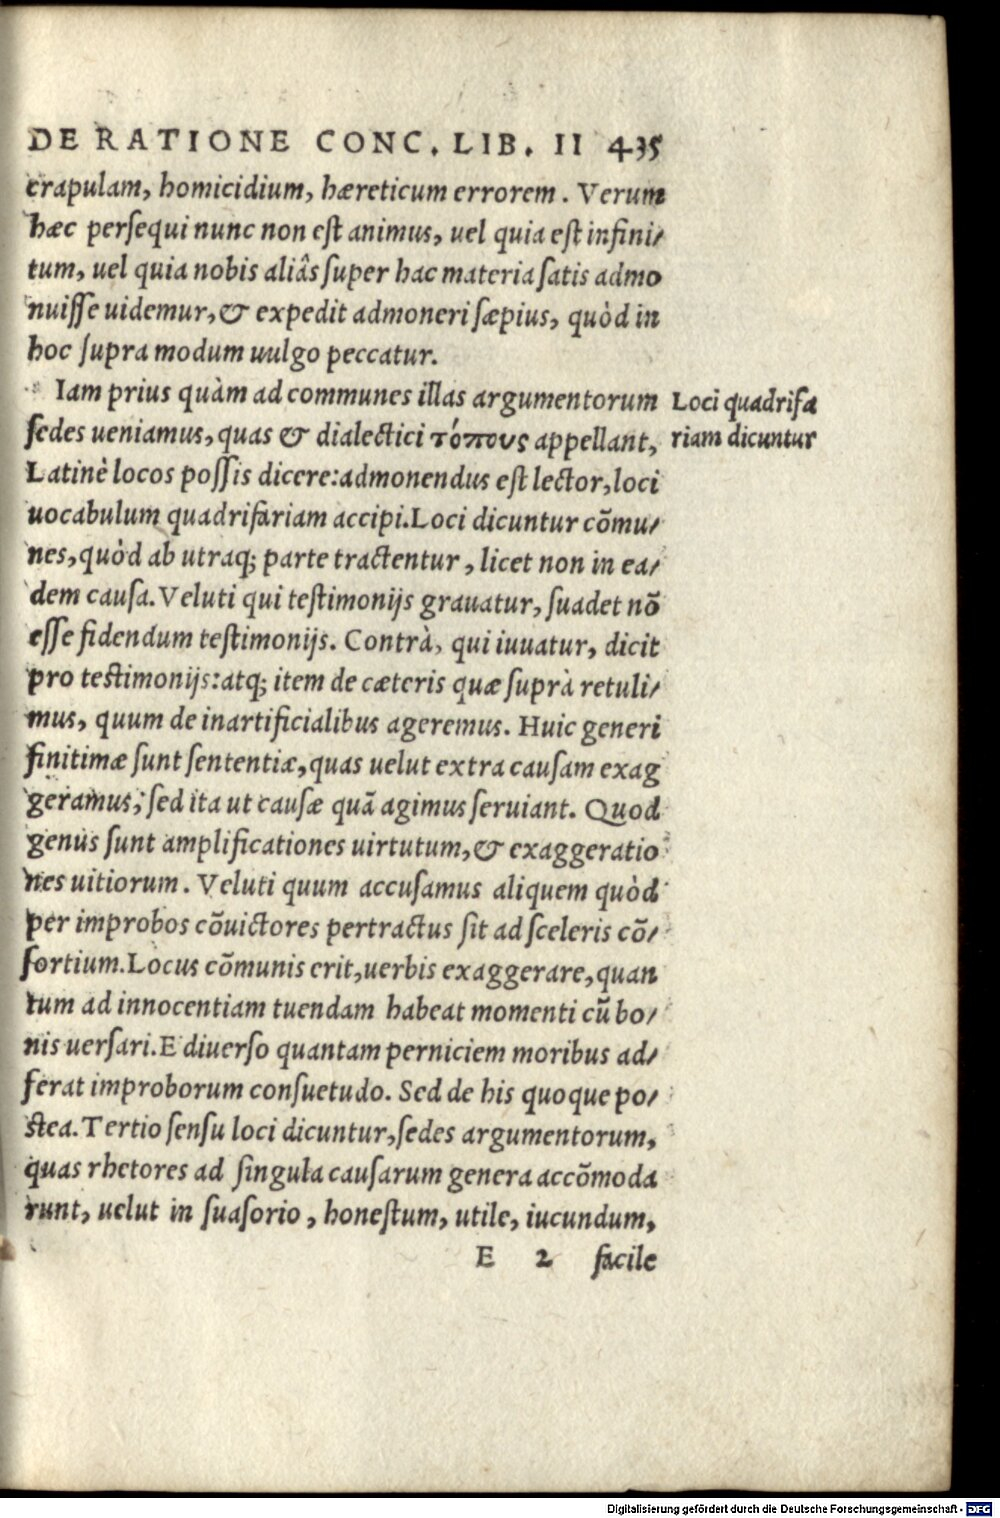 DE RATIONE CONC. LIB. II 435
crapulam, homicidium, hæreticum errorem. Verum
hæc persequi nunc non est animus, uel quia est infini/
tum, uel quia nobis aliâs super hac materia satis admo
nuisse uidemur, & expedit admoneri sæpius, quòd in
hoc supra modum uulgo peccatur.
Iam prius quàm ad communes illas argumentorum
Loci quadrifa
sedes ueniamus, quas & dialectici τόπους appellant,
riam dicuntur
Latinè locos possis dicere: admonendus est lector, loci
uocabulum quadrifariam accipi. Loci dicuntur cõmu/
nes, quòd ab utraq; parte tractentur, licet non in ea/
dem causa. Veluti qui testimonijs grauatur, suadet nõ
esse fidendum testimonijs. Contrà, qui iuuatur, dicit
pro testimonijs: atq; item de cæteris quæ suprà retuli/
mus, quum de inartificialibus ageremus. Huic generi
finitimæ sunt sententiæ, quas uelut extra causam exag
geramus, sed ita ut causæ quã agimus seruiant. Quod
genus sunt amplificationes uirtutum, & exaggeratio
nes uitiorum. Veluti quum accusamus aliquem quòd
per improbos cõuictores pertractus sit ad sceleris cõ/
sortium. Locus cõmunis erit, uerbis exaggerare, quan
tum ad innocentiam tuendam habeat momenti cũ bo/
nis uersari. E diuerso quantam perniciem moribus ad/
ferat improborum consuetudo. Sed de his quoque po/
stea. Tertio sensu loci dicuntur, sedes argumentorum,
quas rhetores ad singula causarum genera accõmoda
runt, uelut in suasorio, honestum, utile, iucundum,
E 2 facile
Digitalisierung gefördert durch die Deutsche Forschungsgemeinschaft - DFG